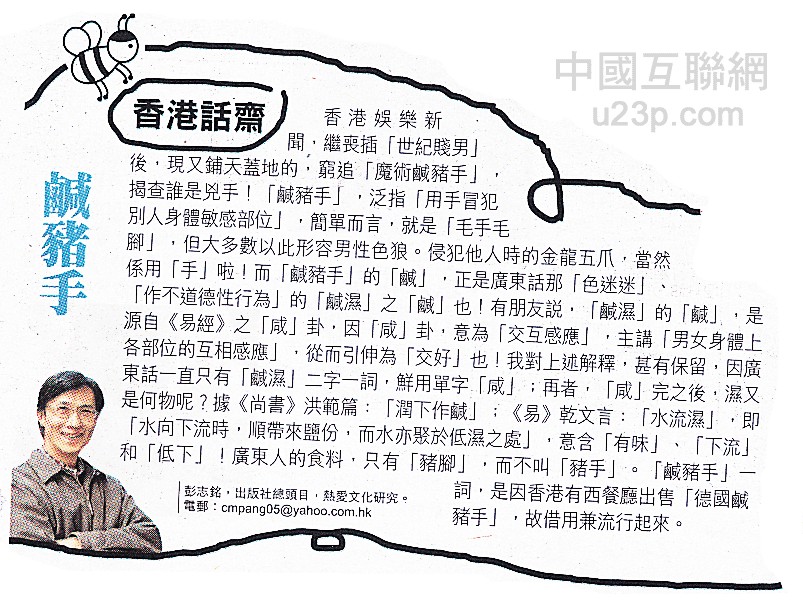 中國互聯網
u23p.com
香港話齋
鹹豬手
香港娛樂新
聞，繼喪插「世紀賤男」
後，現又鋪天蓋地的，窮追「魔術鹹豬手」，
揭查誰是兇手！「鹹豬手」，泛指「用手冒犯
別人身體敏感部位」，簡單而言，就是「毛手毛
腳」，但大多數以此形容男性色狼。侵犯他人時的金龍五爪，當然
係用「手」啦！而「鹹豬手」的「鹹」，正是廣東話那「色迷迷」、
「作不道德性行為」的「鹹濕」之「鹹」也！有朋友説，「鹹濕」的「鹹」，是
源自《易經》之「咸」卦，因「咸」卦，意為「交互感應」，主講「男女身體上
各部位的互相感應」，從而引伸為「交好」也！我對上述解釋，甚有保留，因廣
東話一直只有「鹹濕」二字一詞，鮮用單字「咸」；再者，「咸」完之後，濕又
是何物呢？據《尚書》洪範篇：「潤下作鹹」；《易》乾文言：「水流濕」，即
「水向下流時，順帶來鹽份，而水亦聚於低濕之處」，意含「有味」、「下流」
和「低下」！廣東人的食料，只有「豬腳」，而不叫「豬手」。「鹹豬手」一
詞，是因香港有西餐廳出售「德國鹹
豬手」，故借用兼流行起來。
彭志銘，出版社總頭目，熱愛文化研究。
電郵：cmpang05@yahoo.com.hk